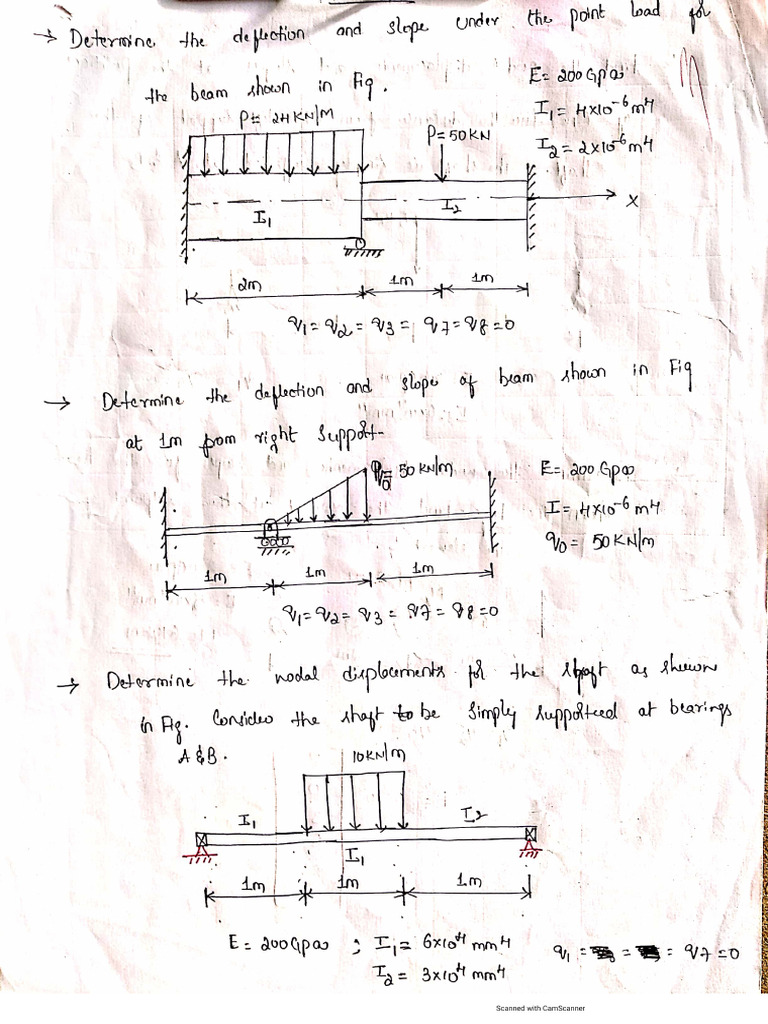 → Determine the deflection and slope under the point load for
the beam shown in Fig.
E = 200 Gpa
I1 = 4×10^-6 m4
I2 = 2×10^-6 m4
P = 24 KN/M
P = 50 KN
I1
I2
X
2m
1m
1m
q1 = q2 = q3 = q7 = q8 = 0
→ Determine the deflection and slope of beam shown in Fig
at 1m from right support-
q0 = 50 KN/m
E = 200 Gpa
I = 4×10^-6 m4
q0 = 50 KN/m
1m
1m
1m
q1 = q2 = q3 = q7 = q8 = 0
→ Determine the nodal displacements for the shaft as shewn
in Fig. Consider the shaft to be simply supported at bearings
A & B.
10 KN/m
I1
I2
I1
1m
1m
1m
E = 200 Gpa ; I1 = 6×10^4 mm4
I2 = 3×10^4 mm4
q1 = = = q7 = 0
Scanned with CamScanner